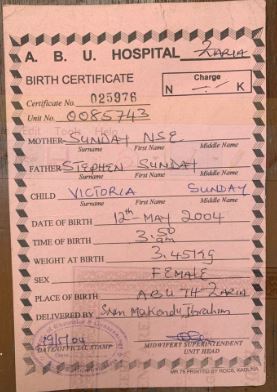 A. B. U. HOSPITAL ZARIA
BIRTH CERTIFICATE
Charge
N K
Certificate No. 025976
Unit No. 0085743
MOTHER SUNDAY NSE
Surname First Name Middle Name
FATHER STEPHEN SUNDAY
Surname First Name Middle Name
CHILD VICTORIA SUNDAY
Surname First Name Middle Name
DATE OF BIRTH 12th MAY 2004
TIME OF BIRTH 3:50 am
WEIGHT AT BIRTH 3.45kg
SEX FEMALE
PLACE OF BIRTH ABUTH ZARIA
DELIVERED BY Makondu Ibrahim
19/5/04
DATE/OFFICIAL STAMP MIDWIFERY SUPERINTENDENT
UNIT HEAD
MR 75 PRINTED BY ROCO, KADUNA